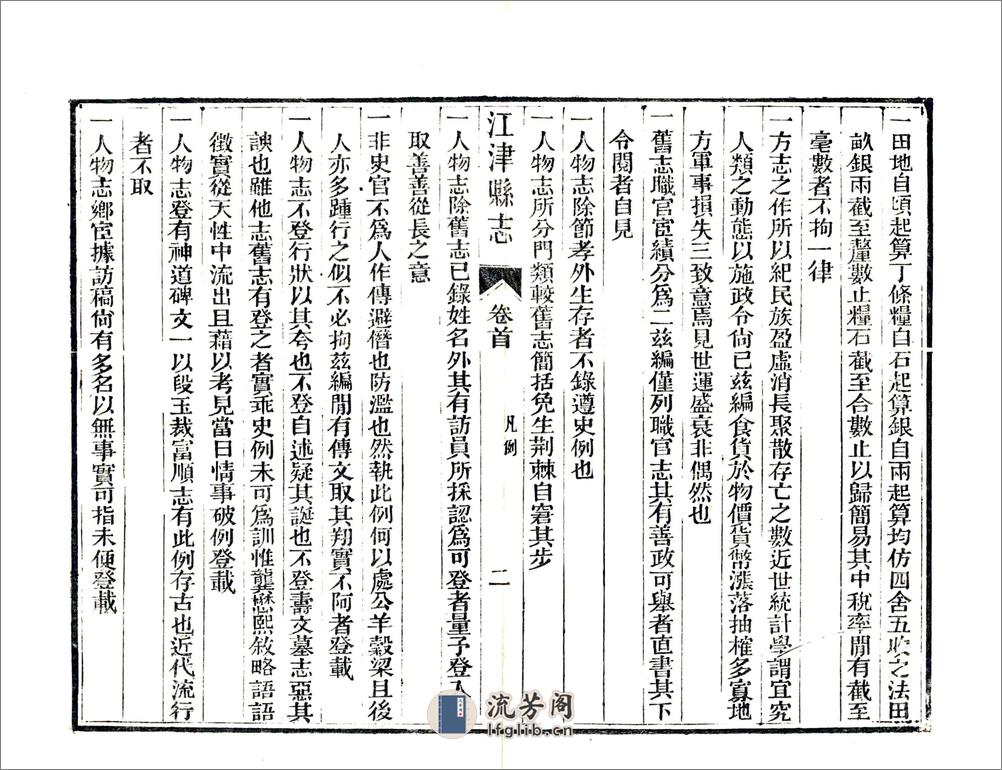 一田地自頃起算丁條糧自石起算銀自兩起算均仿四舍五收之法田
畝銀兩截至釐數止糧石截至合數止以歸簡易其中稅率閒有截至
毫數者不拘一律
一方志之作所以紀民族盈虛消長聚散存亡之數近世統計學謂宜究
人類之動態以施政令尙已茲編食貨於物價貨幣漲落抽榷多寡地
方軍事損失三致意焉見世運盛衰非偶然也
一舊志職官宦績分爲二茲編僅列職官志其有善政可舉者直書其下
令閱者自見
一人物志除節孝外生存者不錄遵史例也
一人物志所分門類較舊志簡括免生荆棘自窘其步
江津縣志
卷首
凡例
二
一人物志除舊志已錄姓名外其有訪員所採認爲可登者量予登入
取善善從長之意
一非史官不爲人作傳避僭也防濫也然執此例何以處公羊穀梁且後
人亦多踵行之似不必拘茲編閒有傳文取其翔實不阿者登載
一人物志不登行狀以其夸也不登自述疑其誕也不登壽文墓志惡其
諛也雖他志舊志有登之者實乖史例未可爲訓惟龔懋熙敘略語語
徵實從天性中流出且藉以考見當日情事破例登載
一人物志登有神道碑文一以段玉裁富順志有此例存古也近代流行
者不取
一人物志鄉宦據訪稿尙有多名以無事實可指未便登載
流芳阁
lfglib.cn